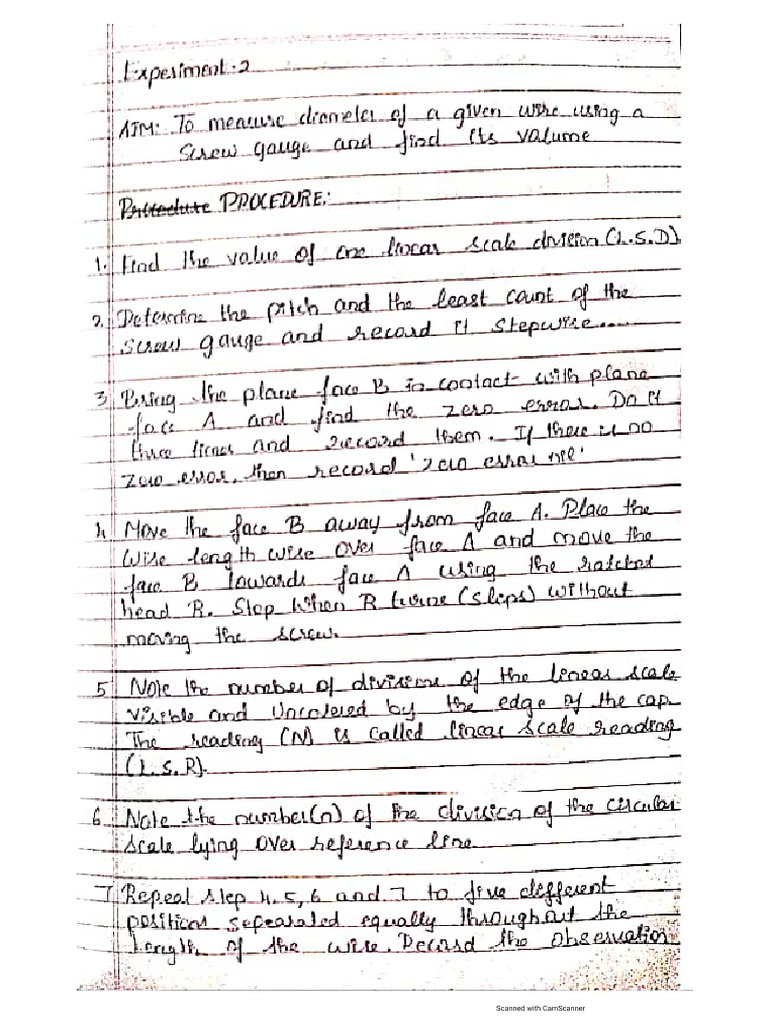 Experiment:2
AIM: To measure diameter of a given wire using a
Screw gauge and find its volume
Procedure PROCEDURE:
1. Find the value of one linear scale division (L.S.D)
2. Determine the pitch and the least count of the
screw gauge and record it stepwise......
3 Bring the plane face B in contact with plane
face A and find the zero error. Do it
three times and record them. If there is no
zero error, then record 'zero error nil'
4 Move the face B away from face A. Place the
wire length wise over face A and move the
face B towards face A using the ratchet
head R. Stop when R turns (slips) without
moving the screw.
5 Note the number of divisions of the linear scale
visible and Uncovered by the edge of the cap.
The reading (N) is called linear scale reading
(L.S.R).
6 Note the number(n) of the division of the circular
scale lying over reference line
7 Repeat step 4.5,6 and 7 to five different
positions separated equally throughout the
length of the wire. Record the observation
Scanned with CamScanner